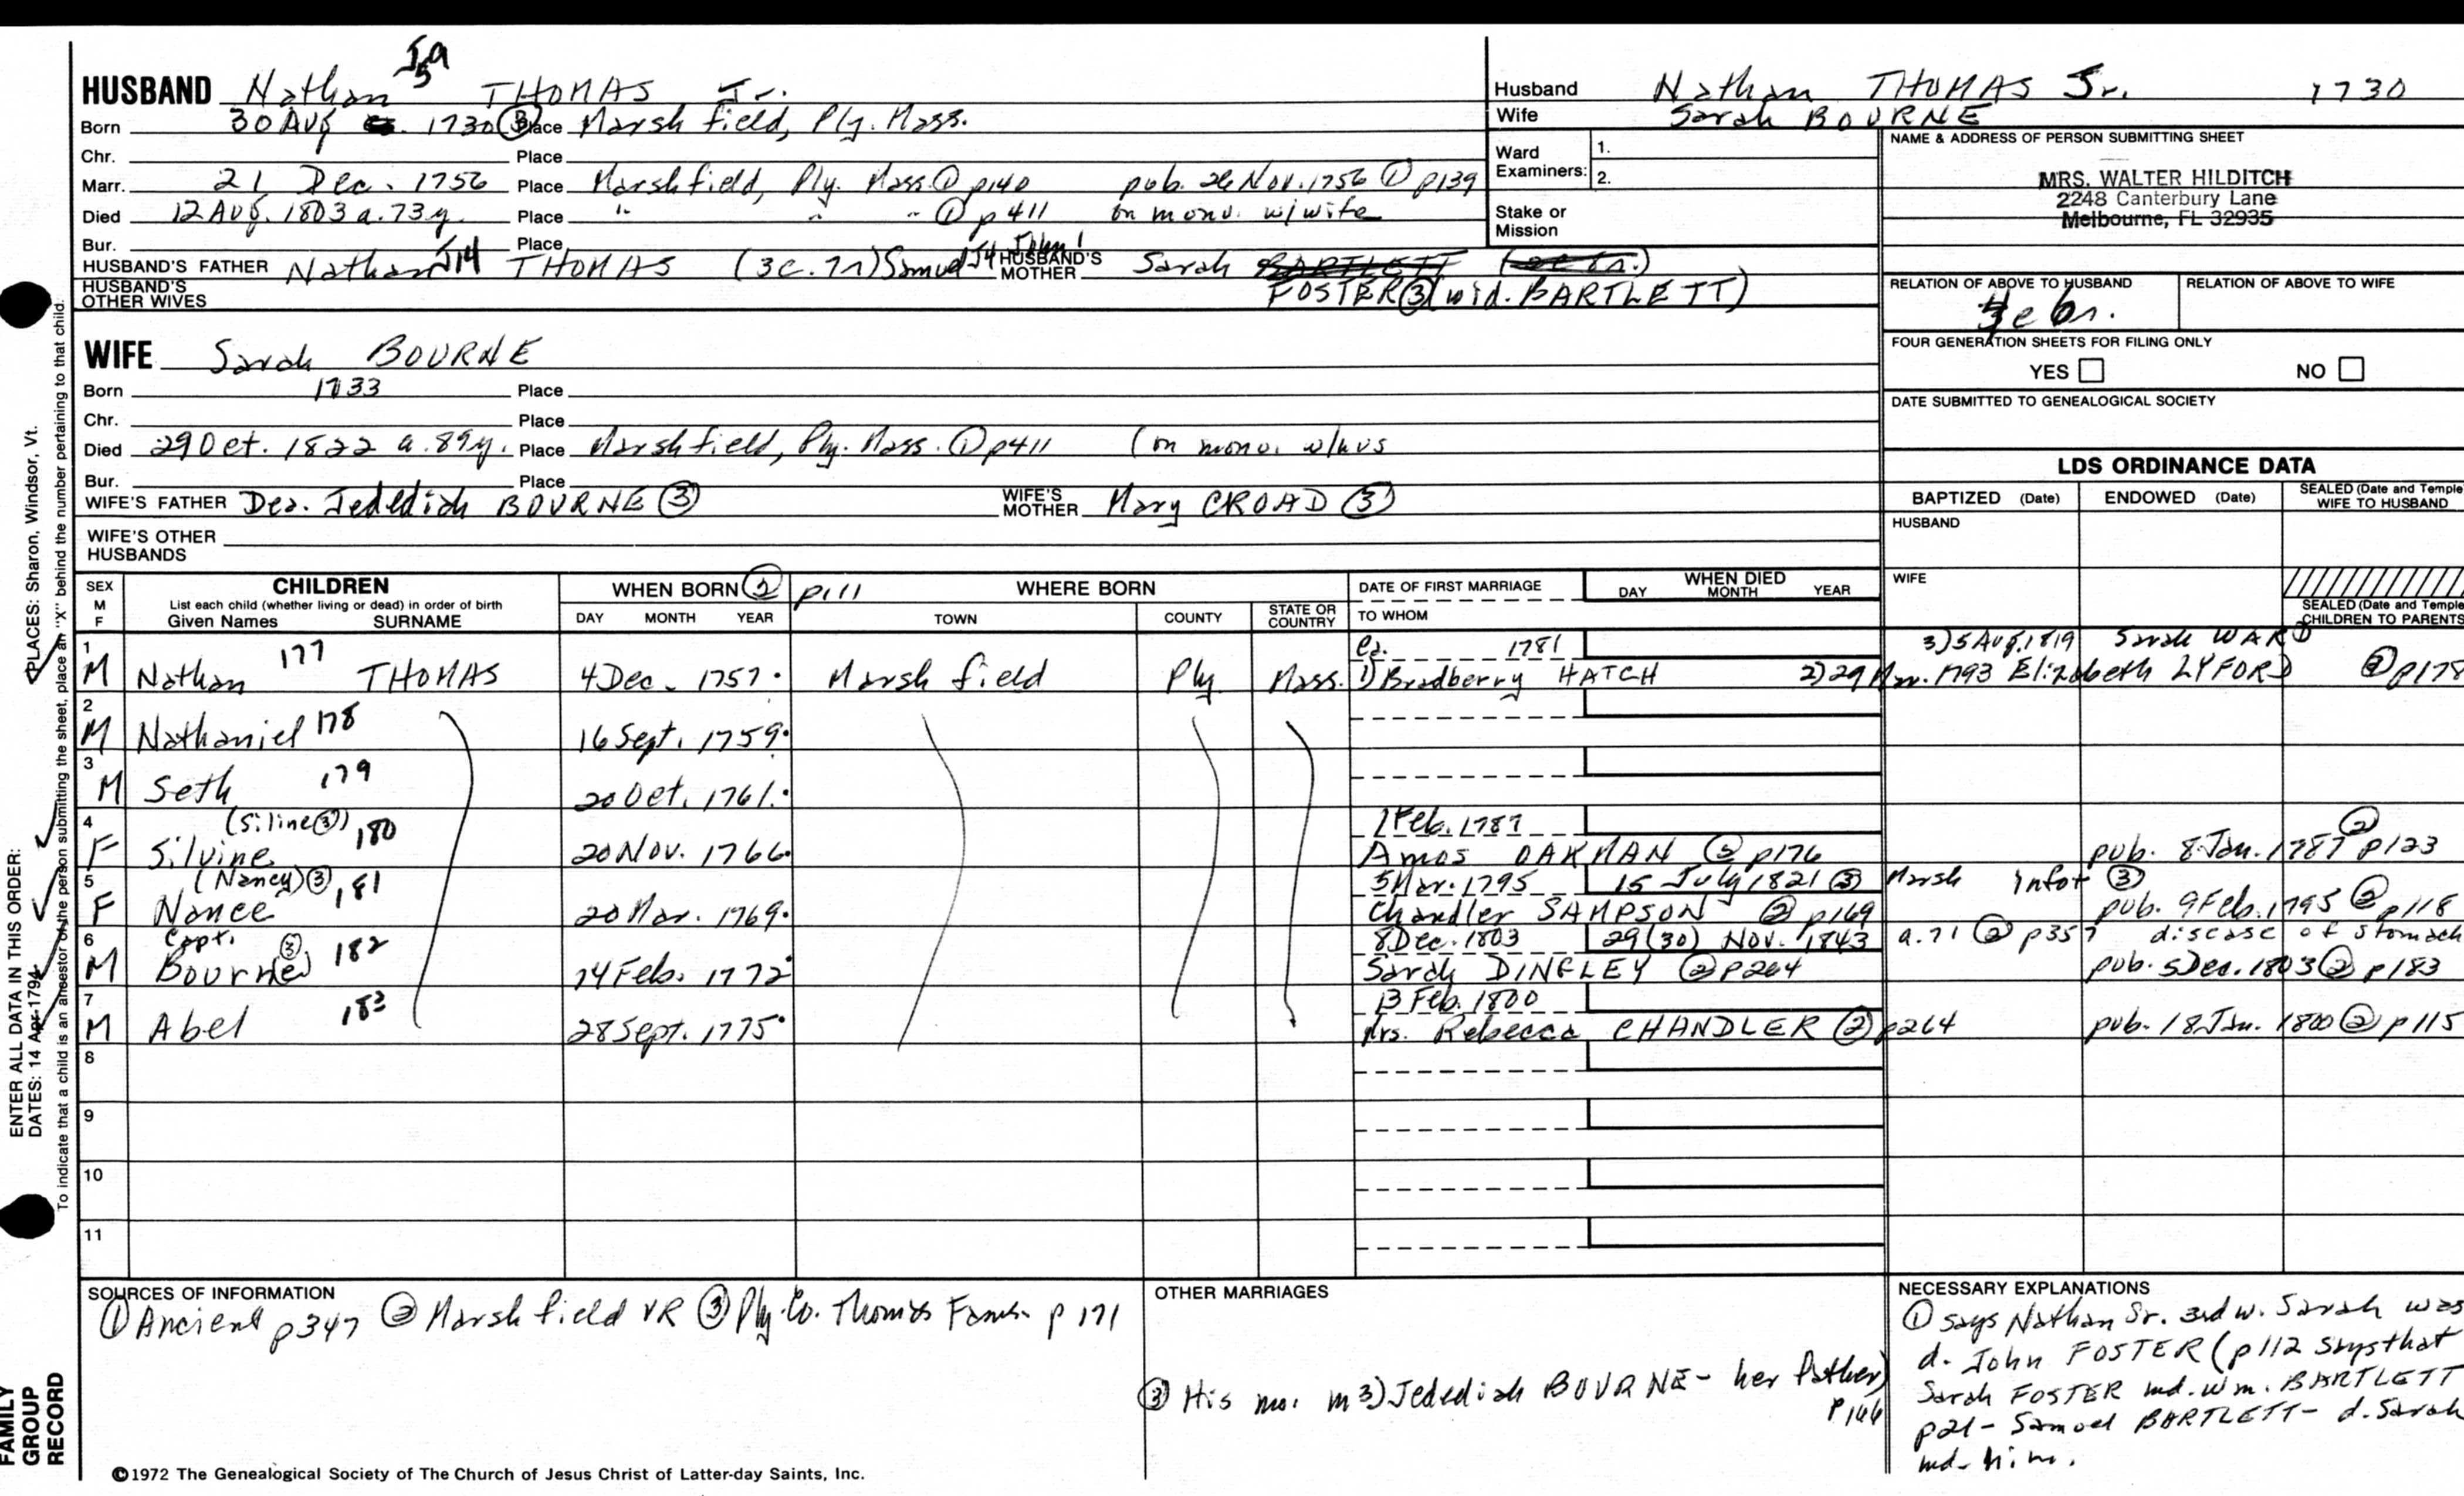 HUSBAND Nathan THOMAS Jr.
Born 30 Aug 1730 ③ Place Marshfield, Ply. Mass.
Chr. Place
Marr. 21 Dec. 1756 Place Marshfield, Ply. Mass. ① p140 pub. 26 Nov. 1756 ① p139
Died 12 Aug. 1803 a. 73y. Place " " " ① p411 on monu. w/wife
Bur. Place
HUSBAND'S FATHER Nathan THOMAS Samuel John HUSBAND'S MOTHER Sarah
FOSTER ③ (wid. BARTLETT)
HUSBAND'S OTHER WIVES
Husband Nathan THOMAS Jr. 1730
Wife Sarah BOURNE
Ward Examiners: 1.
2.
Stake or Mission
NAME & ADDRESS OF PERSON SUBMITTING SHEET
MRS. WALTER HILDITCH
2248 Canterbury Lane
Melbourne, FL 32935
RELATION OF ABOVE TO HUSBAND RELATION OF ABOVE TO WIFE
FOUR GENERATION SHEETS FOR FILING ONLY
YES NO
DATE SUBMITTED TO GENEALOGICAL SOCIETY
WIFE Sarah BOURNE
Born 1733 Place
Chr. Place
Died 29 Oct. 1822 a. 89y. Place Marshfield, Ply. Mass. ① p411 (on monu. w/hus
Bur. Place
WIFE'S FATHER Dea. Jedediah BOURNE ③ WIFE'S MOTHER Mary CROAD ③
WIFE'S OTHER HUSBANDS
LDS ORDINANCE DATA
BAPTIZED (Date) ENDOWED (Date) SEALED (Date and Temple WIFE TO HUSBAND
HUSBAND
WIFE
SEALED (Date and Temple CHILDREN TO PARENTS
SEX M F CHILDREN List each child (whether living or dead) in order of birth Given Names SURNAME
WHEN BORN ② p111 DAY MONTH YEAR
WHERE BORN TOWN COUNTY STATE OR COUNTRY
DATE OF FIRST MARRIAGE TO WHOM
WHEN DIED DAY MONTH YEAR
1 Ca. 1781 3) 5 Aug. 1819 Sarah WARD
M Nathan 177 THOMAS 4 Dec. 1757 Marshfield Ply Mass. 1) Bradberry HATCH 2) 29 1793 Elizabeth LYFORD ② p178
2
M Nathaniel 178 16 Sept. 1759
3
M Seth 179 20 Oct. 1761
4 (Siline ③) 180 1 Feb. 1787 ②
F Silvine 20 Nov. 1766 Amos OAKMAN ② p176 pub. 8 Jan. 1787 p123
5 (Nancy) ③ 181 5 Mar. 1795 15 July 1821 ③ Marsh ③
F Nance 20 Mar. 1769 Chandler SAMPSON ② p169 pub. 9 Feb. 1795 ② p118
6 Capt. ③ 182 8 Dec. 1803 29 (30) Nov. 1843 a. 71 ② p357 disease of stomach
M Bourne 14 Feb. 1772 Sarah DINGLEY ② p264 pub. 5 Dec. 1803 ② p183
7 183 13 Feb. 1800
M Abel 28 Sept. 1775 Mrs. Rebecca CHANDLER ② p264 pub. 18 Jan. 1800 ② p115
8
9
10
11
SOURCES OF INFORMATION
① Ancient p347 ② Marshfield VR ③ Ply. Co. Thomas Fam. p 171
OTHER MARRIAGES
③ His mo. m 3) Jedediah BOURNE - her father)
p166
NECESSARY EXPLANATIONS
① says Nathan Sr. 3rd w. Sarah was
d. John FOSTER (p112 says that
Sarah FOSTER md. Wm. BARTLETT
p21 - Samuel BARTLETT - d. Sarah
md. him.
©1972 The Genealogical Society of The Church of Jesus Christ of Latter-day Saints, Inc.
FAMILY GROUP RECORD
ENTER ALL DATA IN THIS ORDER:
DATES: 14 Apr 1794
PLACES: Sharon, Windsor, Vt.
To indicate that a child is an ancestor of the person submitting the sheet, place an "X" behind the number pertaining to that child.